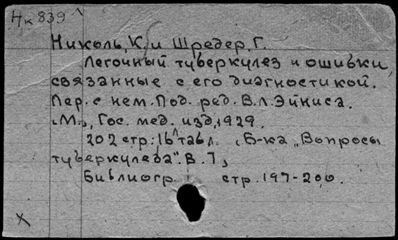 Нк 839
Николь, К. и Шредер, Г.
Легочный туберкулез и ошибки,
связанные с его диагностикой.
Пер. с нем. Под. ред. В.Л. Эйниса.
"М", Гос. мед. изд, 1929.
202 стр; 16 табл. (Б-ка "Вопросы
туберкулеза". В. 7)
Библиогр. стр. 197-200.